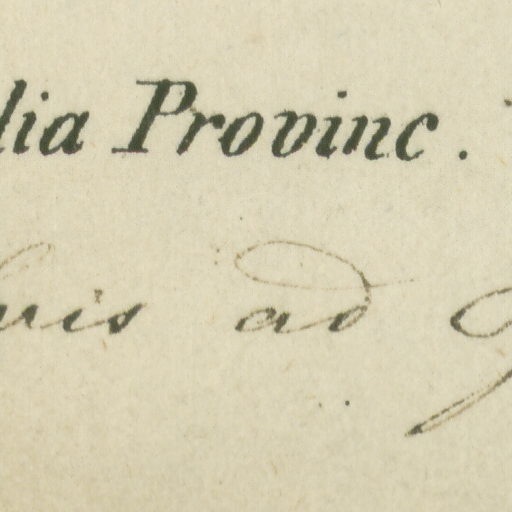 lia Provinc.
uis ad